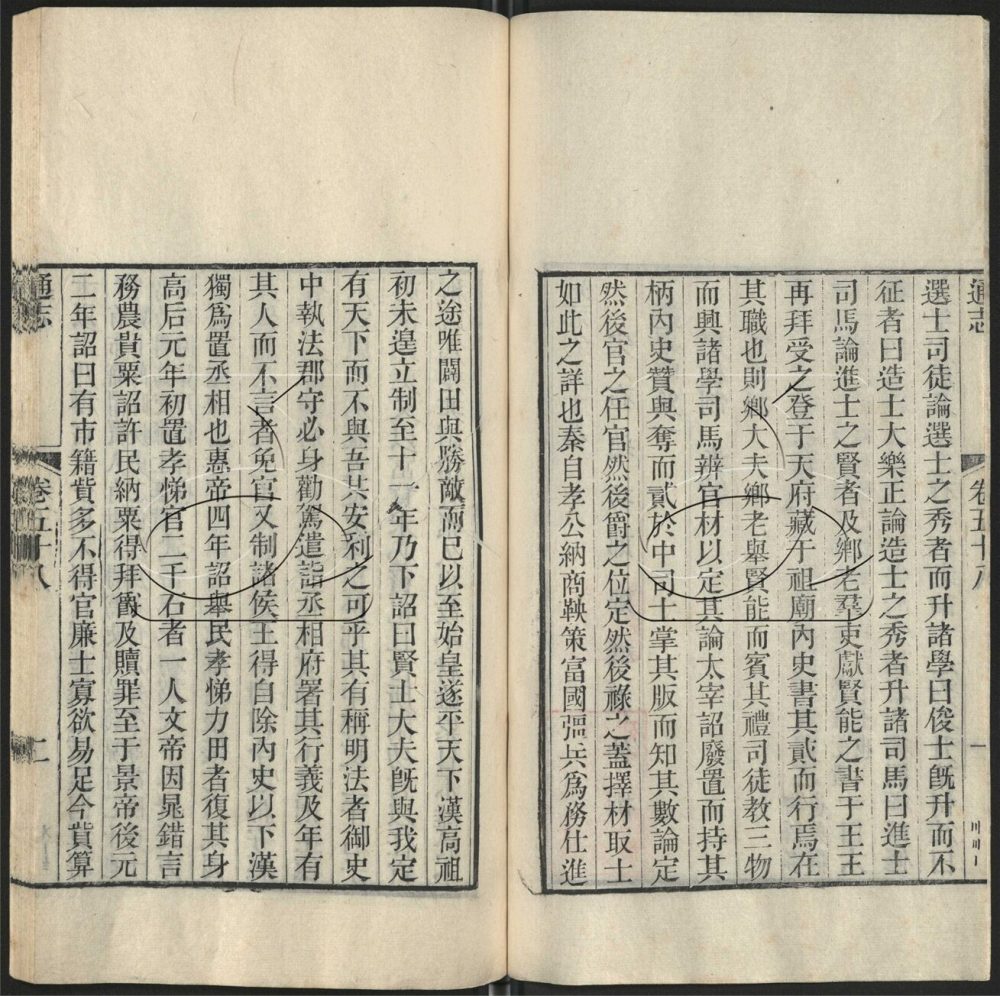 通志
卷五十八
一
選士司徒論選士之秀者而升諸學曰俊士既升而不
征者曰造士大樂正論造士之秀者升諸司馬曰進士
司馬論進士之賢者及鄉老羣吏獻賢能之書于王王
再拜受之登于天府藏于祖廟內史書其貳而行焉在
其職也則鄉大夫鄉老舉賢能而賓其禮司徒教三物
而興諸學司馬辨官材以定其論太宰詔廢置而持其
柄內史贊與奪而貳於中司士掌其版而知其數論定
然後官之任官然後爵之位定然後祿之蓋擇材取士
如此之詳也秦自孝公納商鞅策富國彊兵為務仕進
之途唯闢田與勝敵而已以至始皇遂平天下漢高祖
初未遑立制至十一年乃下詔曰賢士大夫既與我定
有天下而不與吾共安利之可乎其有稱明法者御史
中執法郡守必身勸駕遣詣丞相府署其行義及年有
其人而不言者免官又制諸侯王得自除內史以下漢
獨為置丞相也惠帝四年詔舉民孝悌力田者復其身
高后元年初置孝悌官二千石者一人文帝因晁錯言
務農貴粟詔許民納粟得拜爵及贖罪至于景帝後元
二年詔曰有市籍貲多不得官廉士寡欲易足今貲算
通志
卷五十八
二